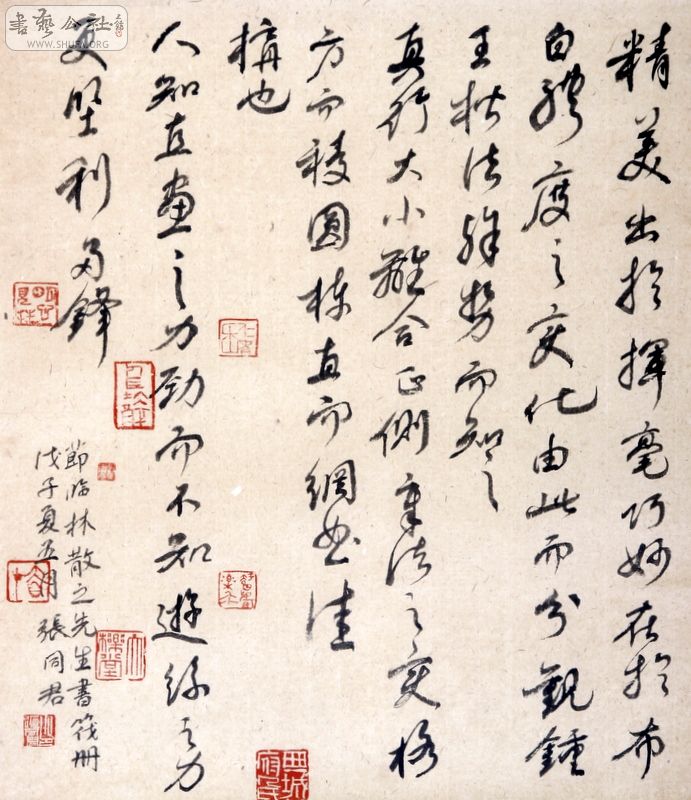 書藝公社
WWW.SHUFA.ORG
精美出於揮毫巧妙在於布
白體度之變化由此而分觀鍾
王楷法殊勢而知之
真行大小離合正側章法之變格
方而稜圓棟直而綱曲佳
構也
人知直畫之力勁而不知遊絲之力
更堅利多鋒
節臨林散之先生書筏冊
戊子夏五月張同君